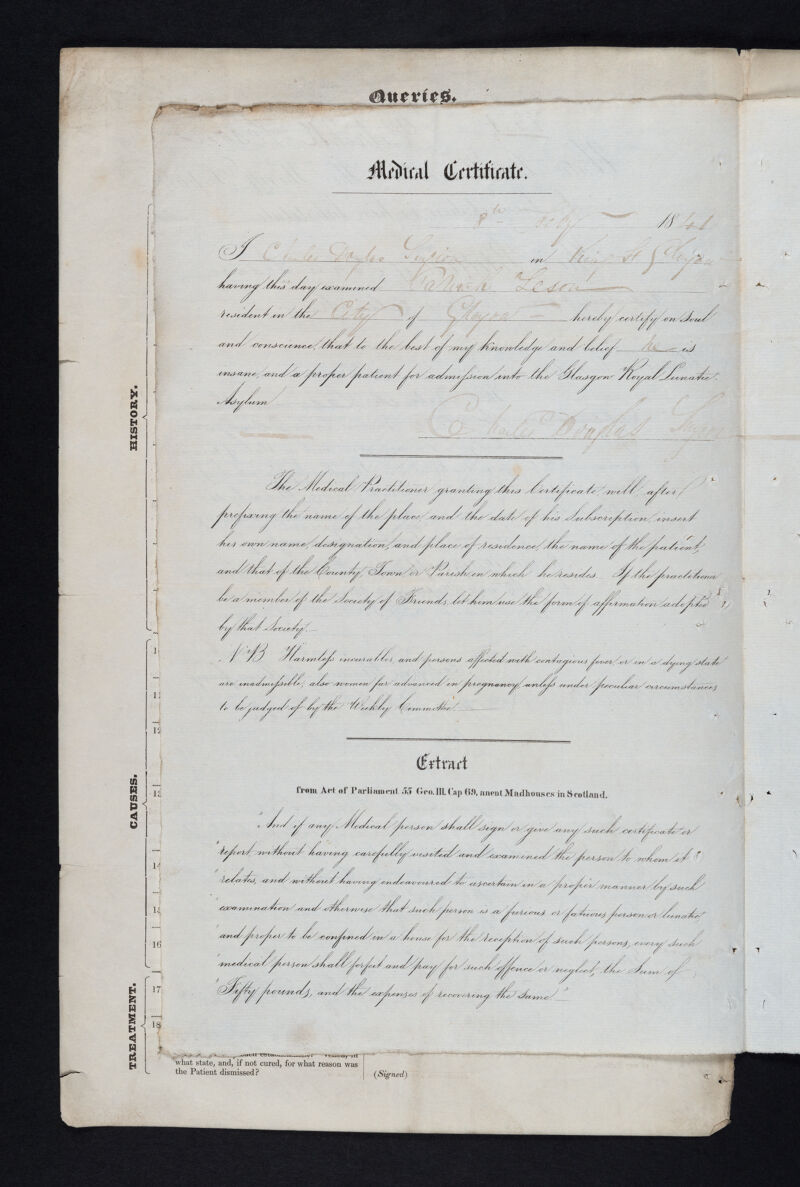 Queries.
Medical Certificate.
8th 1841
I Charles Douglas Surgeon in King St Glasgow
having this day examined Patrick
resident in the City of Glasgow hereby certify on Soul
and conscience, that to the best of my knowledge and belief he is
insane, and a proper patient for admission into the Glasgow Royal Lunatic
Asylum
Charles Douglas Surgeon
The Medical Practitioner granting this Certificate will, after
prefixing the name of the place and the date of his Subscription, insert
his own name, designation, and place of residence, the name of the patient,
and that of the County, Town or Parish in which he resides. If the practitioner
be a member of the Society of Friends, let him use the form of affirmation adopted
by that Society.
N.B. Harmless incurables and persons affected with contagious fever, or in a dying state
are inadmissible; also women far advanced in pregnancy, unless under peculiar circumstances
to be judged of by the Weekly Committee.
Extract
from Act of Parliament 55 Geo. III. Cap 69, anent Madhouses in Scotland.
"And if any Medical person shall sign or give any such certificate or
" report, without having carefully visited and examined the person to whom it
" relates, and without having endeavoured to ascertain in a proper manner by such
" examination and otherwise that such person is a furious or fatuous person or lunatic,
" and proper to be confined in a house for the reception of such persons, every such
" medical person shall forfeit and pay for such offence or neglect, the Sum of
" Fifty pounds, and the expenses of recovering the same"
HISTORY.
CAUSES.
TREATMENT.
12
13
14
16
17
18
what state, and, if not cured, for what reason was
the Patient dismissed?
(Signed)